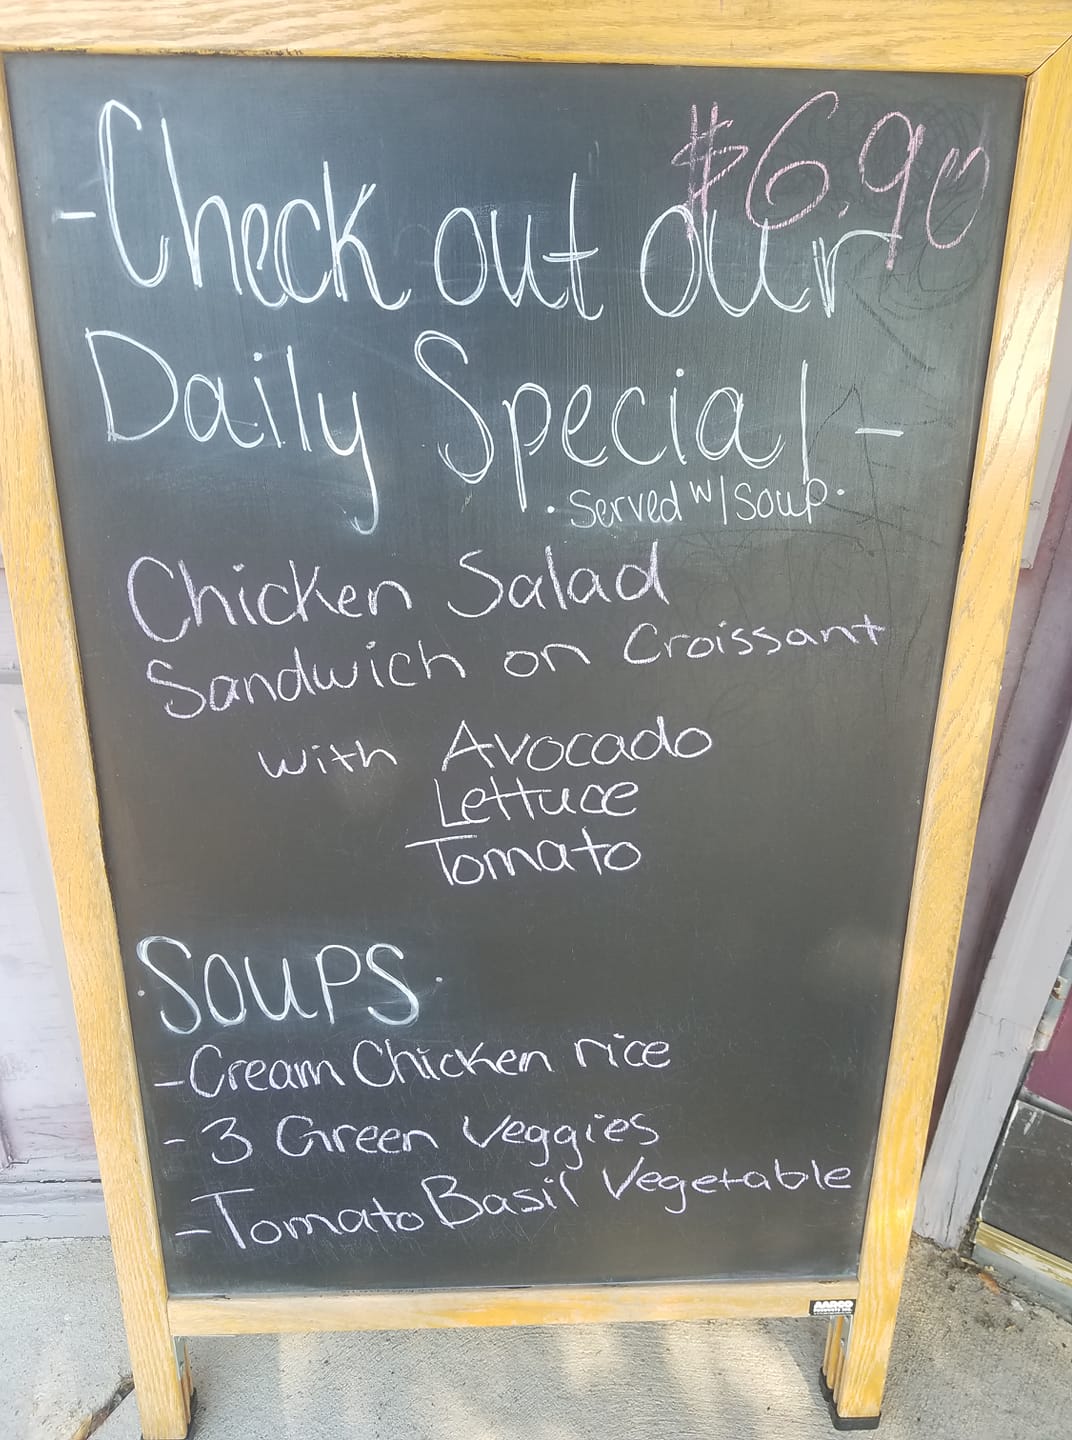 $6.90
-Check out our
Daily Special-
·Served w/ soup·
Chicken Salad
Sandwich on Croissant
with Avocado
Lettuce
Tomato
·SOUPS·
-Cream Chicken rice
-3 Green Veggies
-Tomato Basil Vegetable
AARCO